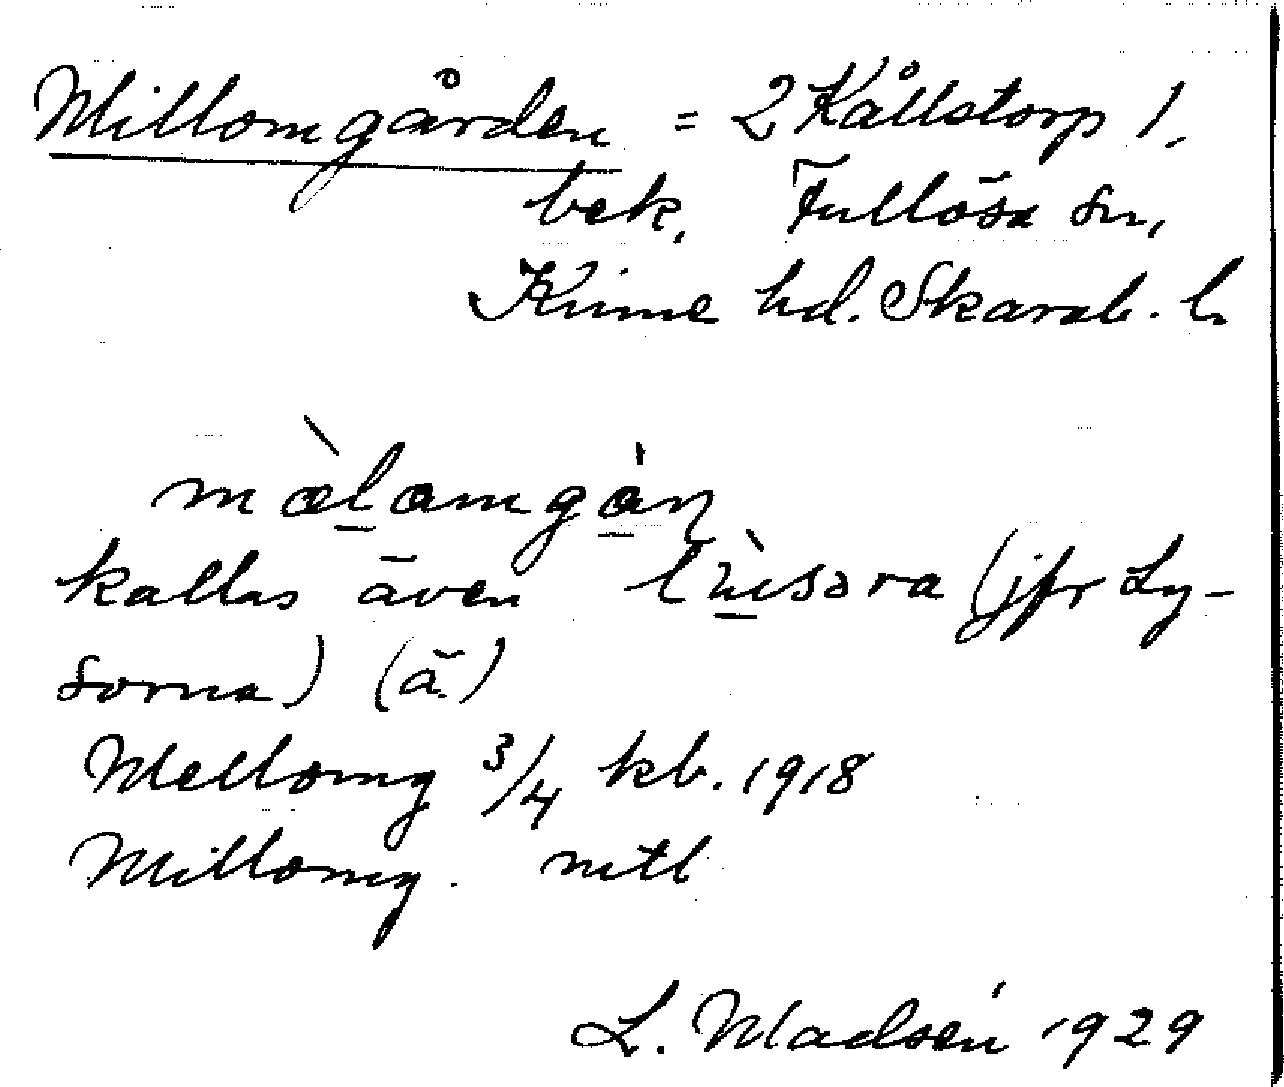 Millomgården = 2 Kållstorp 1,
bek, Fullösa sn,
Kinne hd. Skarab. l.
mæ̀lamgån
kallas även lùsøra (jfr Ly-
sorna) (ä.)
Mellomg 3/4 kb. 1918
Millomg. mtl
L. Madsén 1929